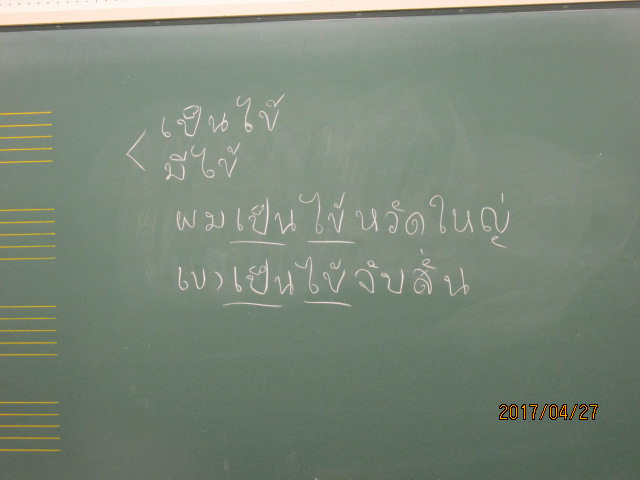 เป็นไข้
มีไข้
ผมเป็นไข้หวัดใหญ่
เขาเป็นไข้จับสั่น
2017/04/27